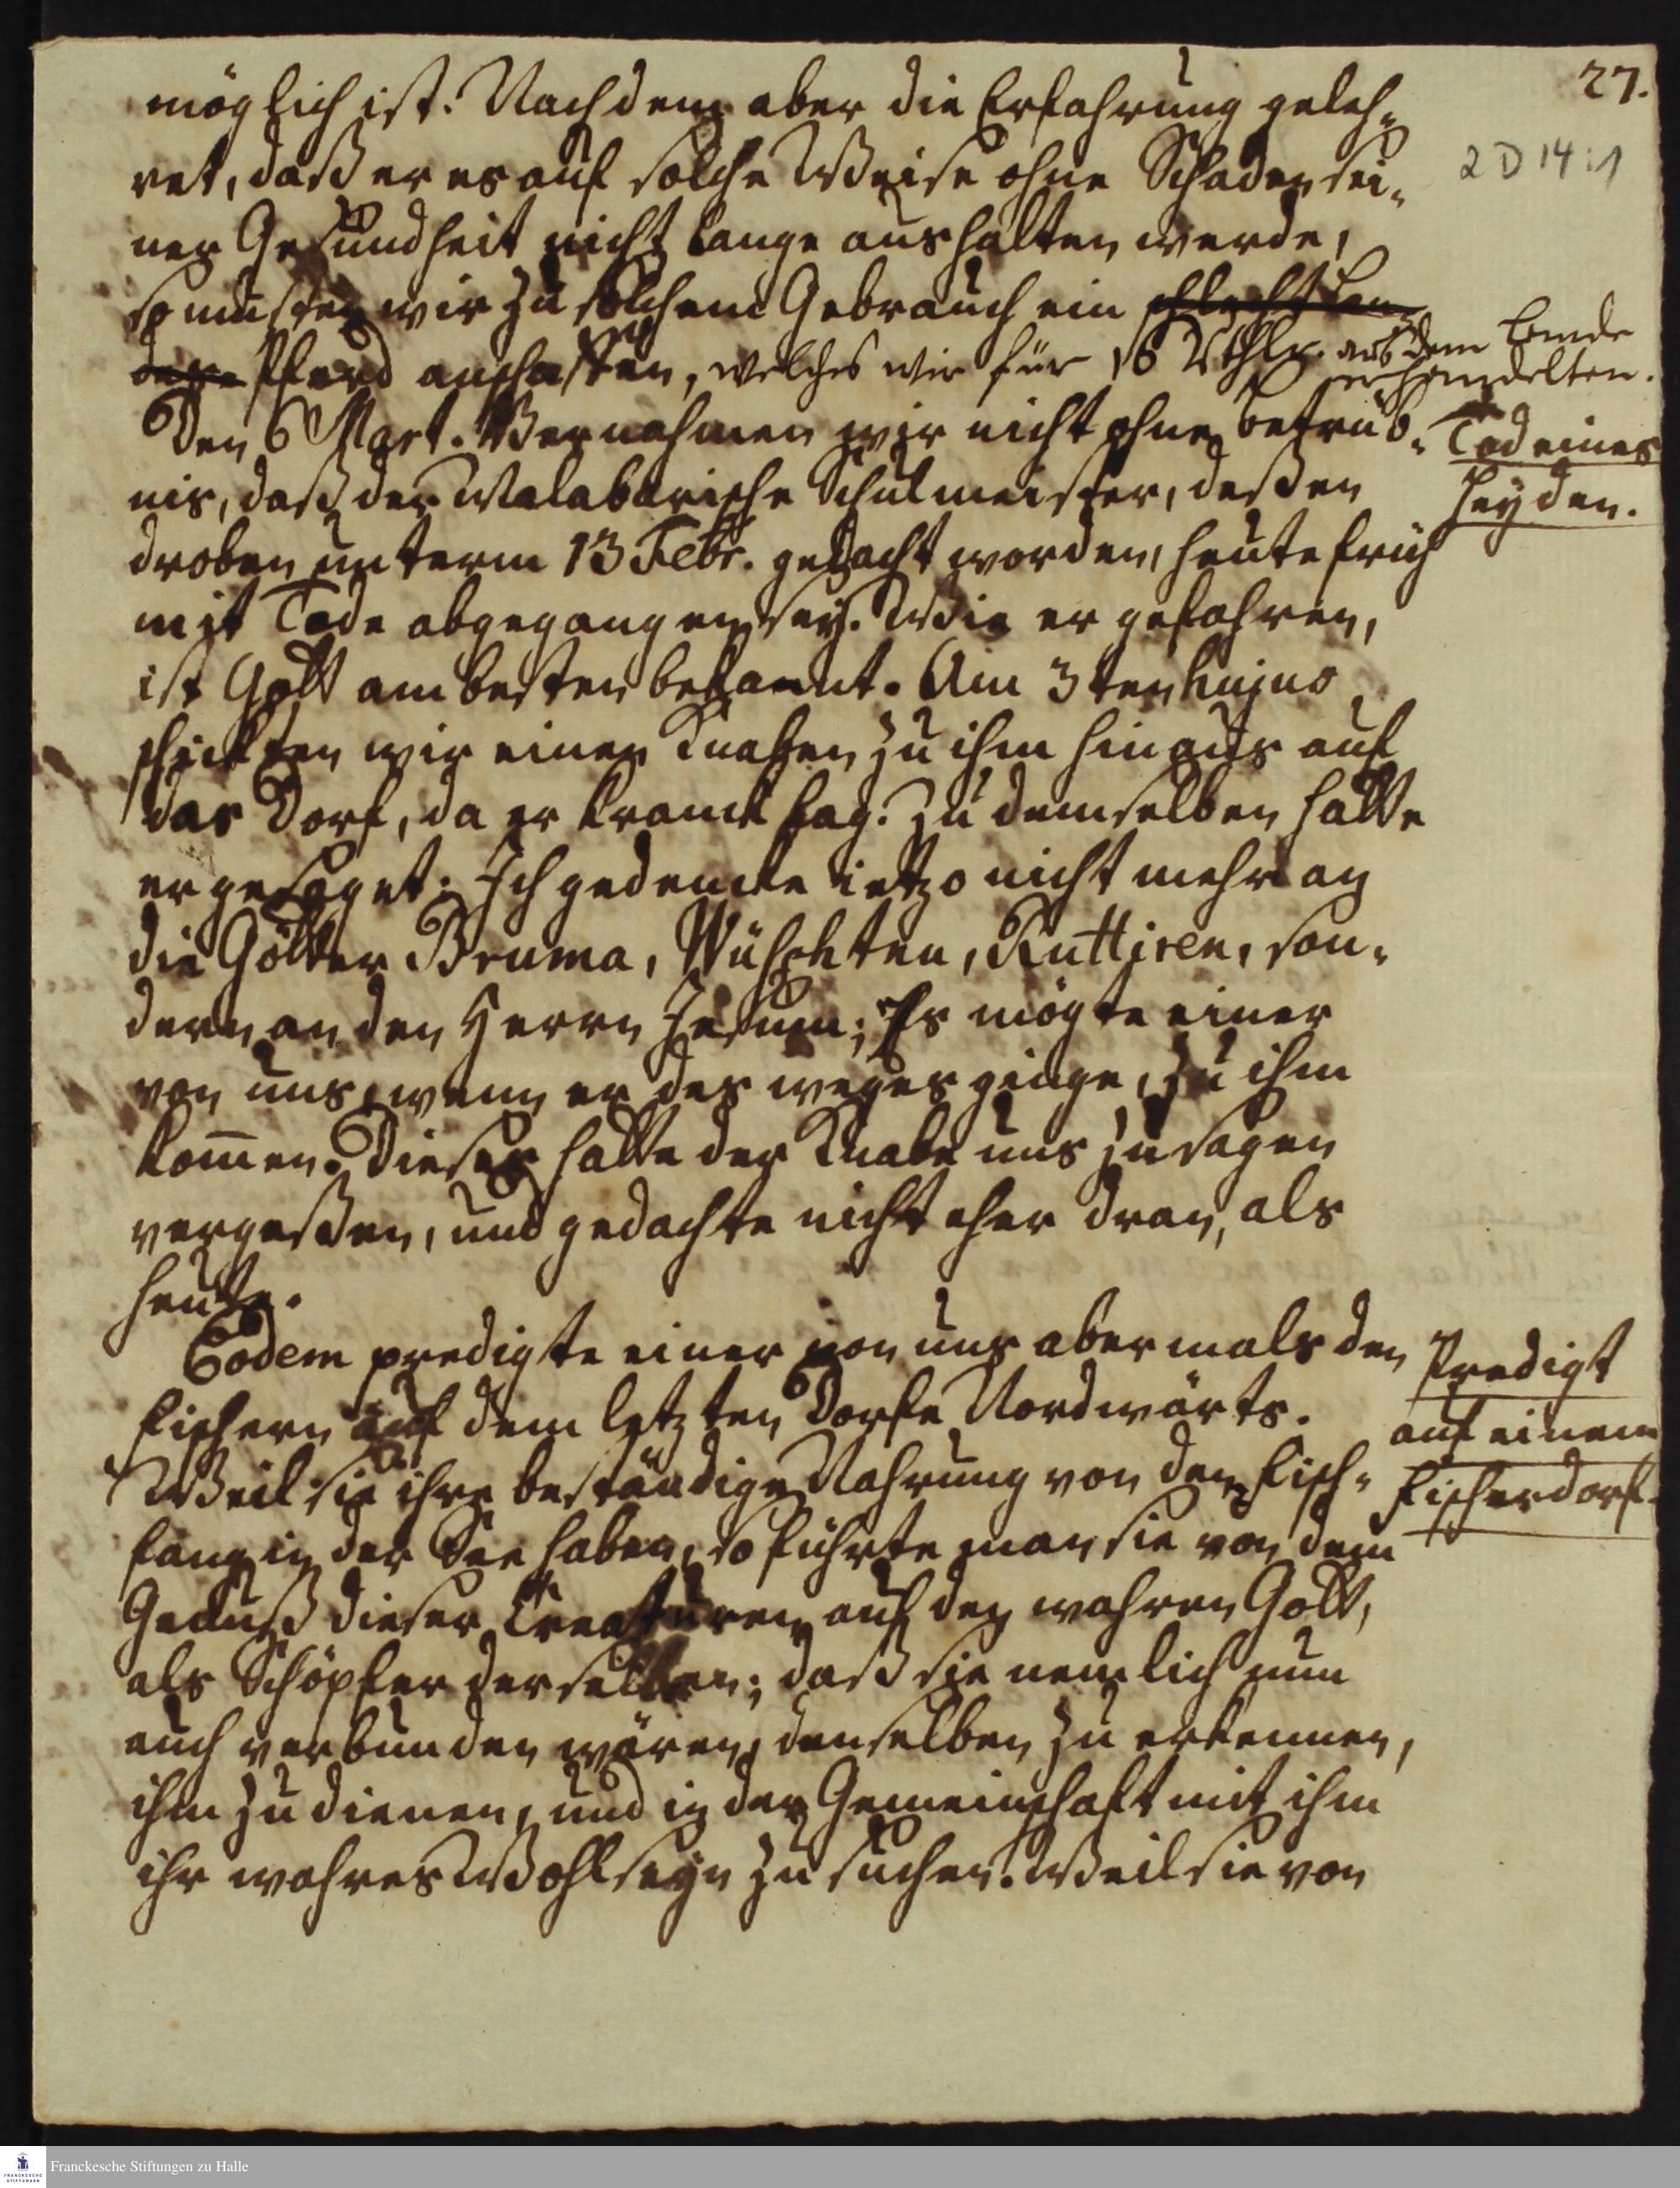 27.
2 D 14:1
möglich ist. Nachdem aber die Erfahrung geleh-
ret, daß er es auf solche Weise ohne Schaden sei-
ner Gesundheit nicht lange aushalten werde,
so musten wir zu solchem Gebrauch ein
Pferd anschaffen, welches wir für 16 Rthlr. aus dem Lande
erhandelten.
Den 6 Mart. Vernahmen wir nicht ohne Betrüb-
nis, daß der Malabarische Schulmeister, deßen
droben unterm 13 Febr. gedacht worden, heute früh
mit Tode abgegangen sey. Wie er gefahren,
ist Gott am besten bekannt. Am 3ten hujus
schickten wir einen Knaben zu ihm hinaus auf
das Dorf, da er kranck lag. Zu demselben hatte
er gesaget: Ich gedencke ietzo nicht mehr an
die Götter Bruma, Wüschten, Ruttiren, son-
dern an den Herrn Jesum; Es mögte einer
von uns, wenn er des weges ginge, zu ihm
kom̄en. Dieses hatte der Knabe uns zu sagen
vergeßen, und gedachte nicht eher dran, als
heute.
Tod eines
Heyden.
Eodem predigte einer von uns abermals den
Fischern auf dem letzten Dorfe Nordwärts.
Weil sie ihre beständige Nahrung von dem Fisch-
fang in der See haben, so führte man sie von dem
Genuß dieser Creaturen auf den wahren Gott,
als Schöpfer derselben; daß sie nemlich nun
auch verbunden wären, denselben zu erkennen,
ihm zu dienen, und in der Gemeinschaft mit ihm
ihr wahres Wohlseyn zu suchen. Weil sie von
Predigt
auf einem
Fischerdorf.
Franckesche Stiftungen zu Halle